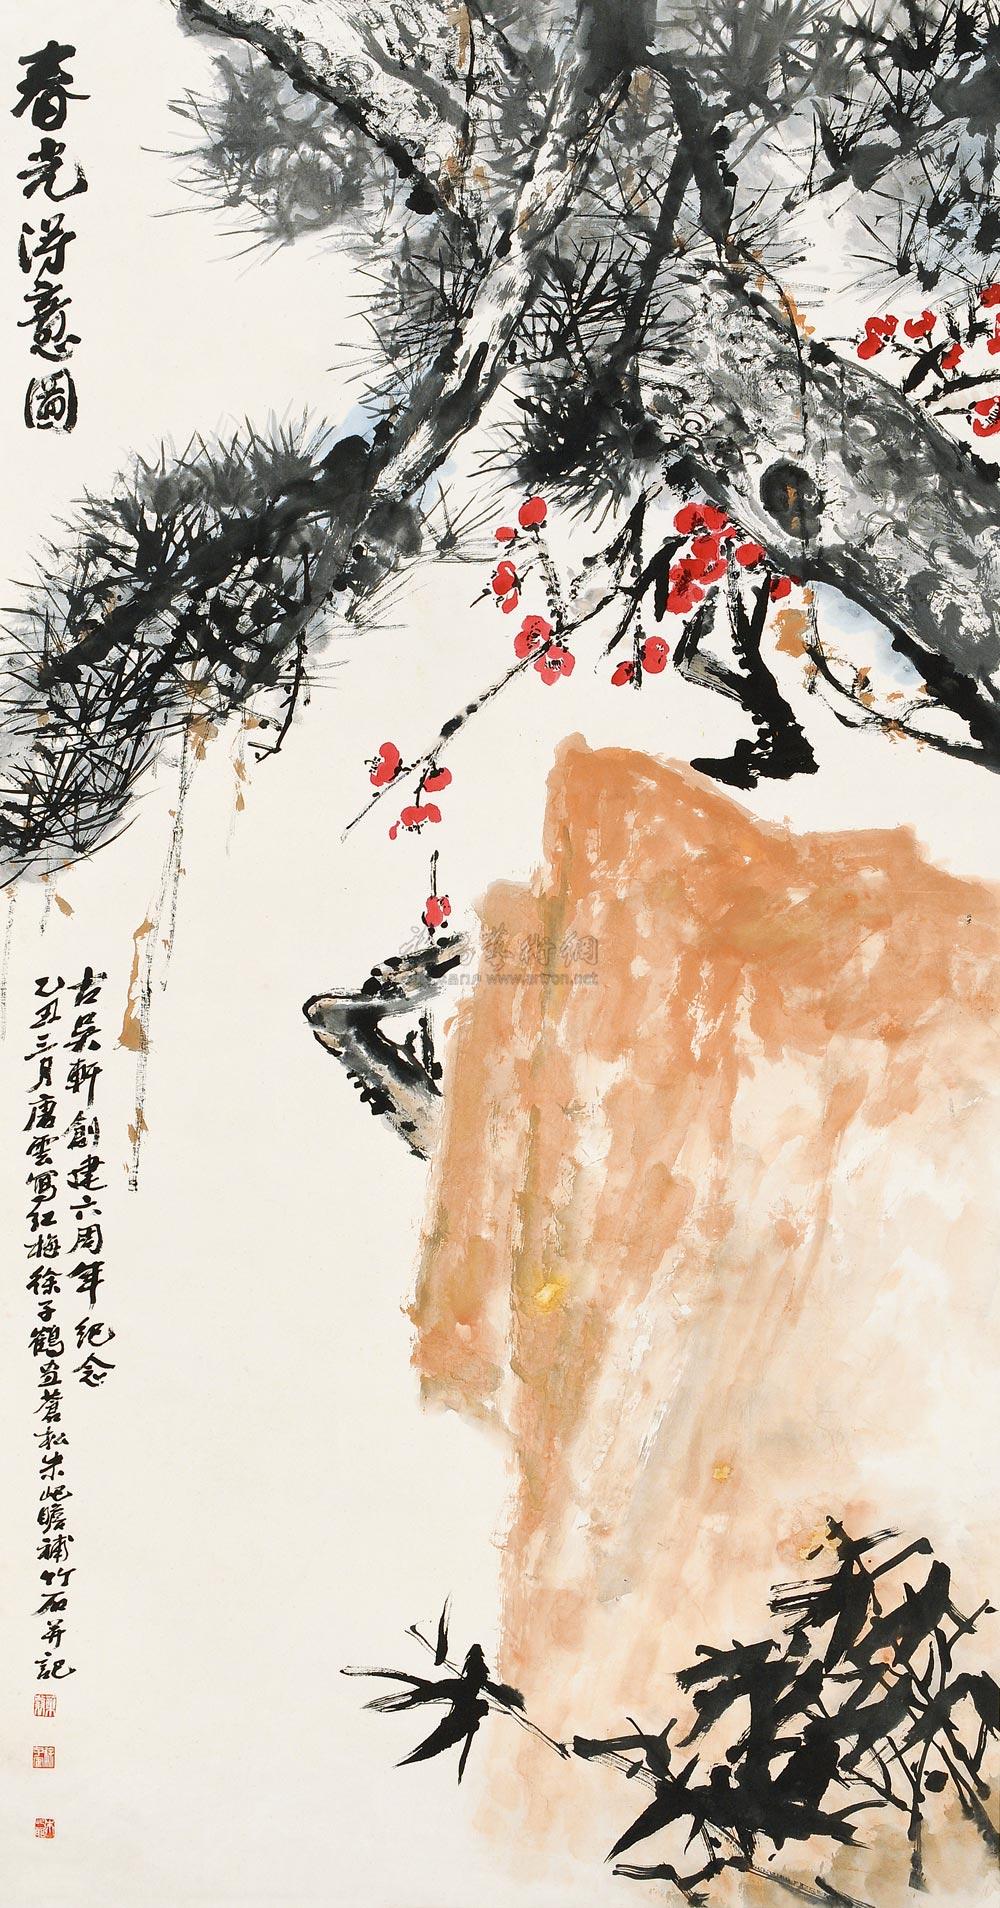 春光得意圖
古吳軒創建六周年紀念
乙丑三月唐雲寫紅梅徐子鶴畫蒼松朱屺瞻補竹石并記
www.artron.net